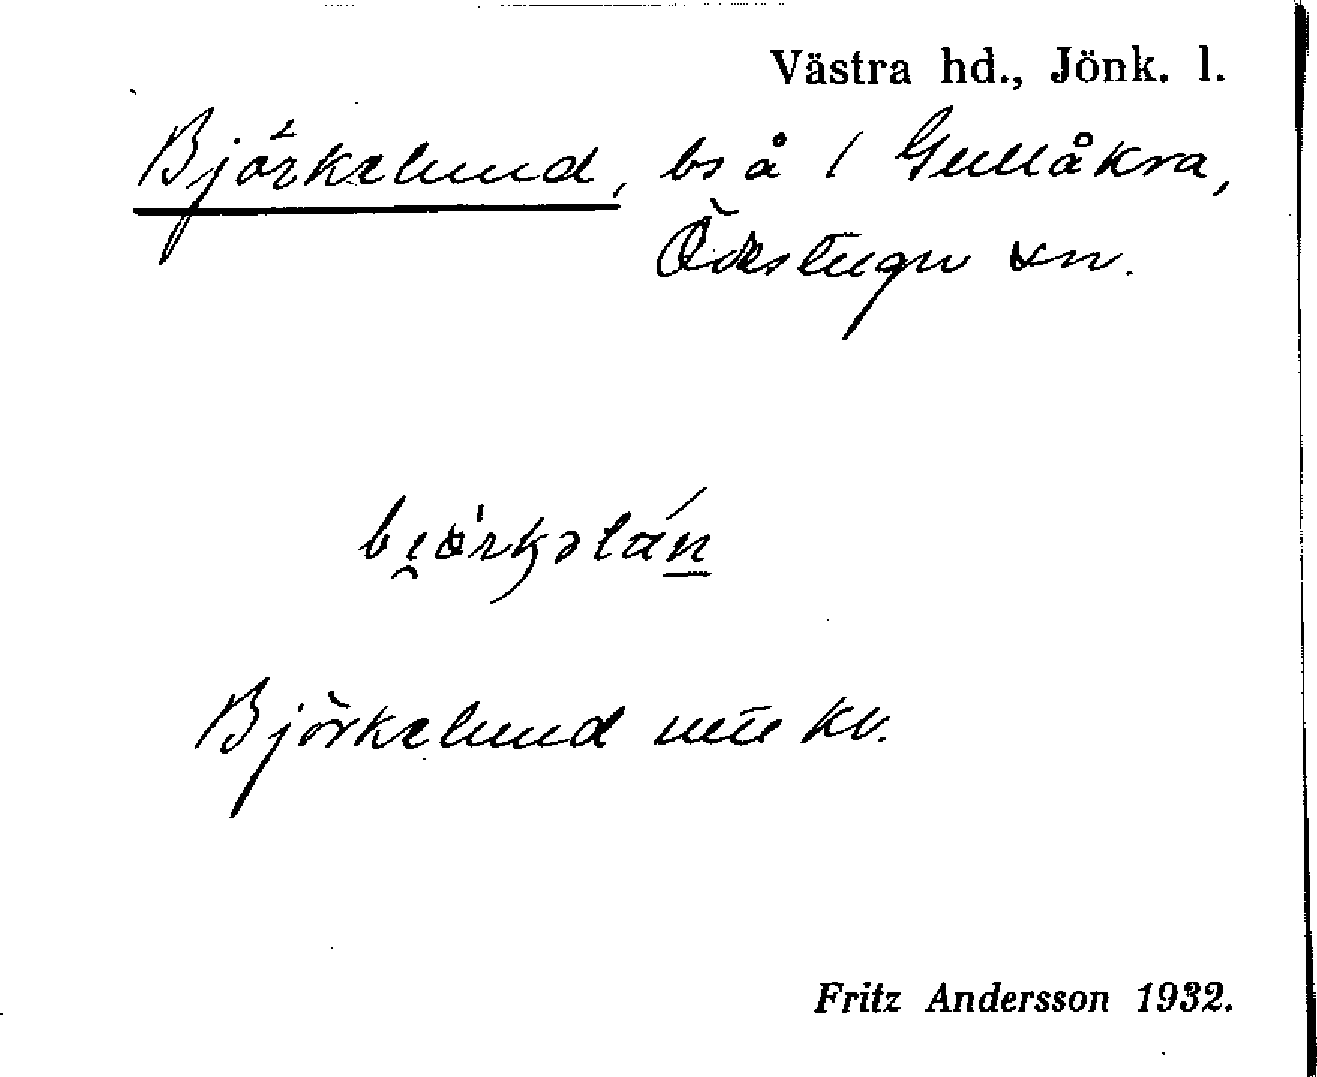 Västra hd., Jönk. l.
Björkelund, bs å 1 Gullåkra,
Ödestugu sn.
Björkelund ute kv.
Fritz Andersson 1932.